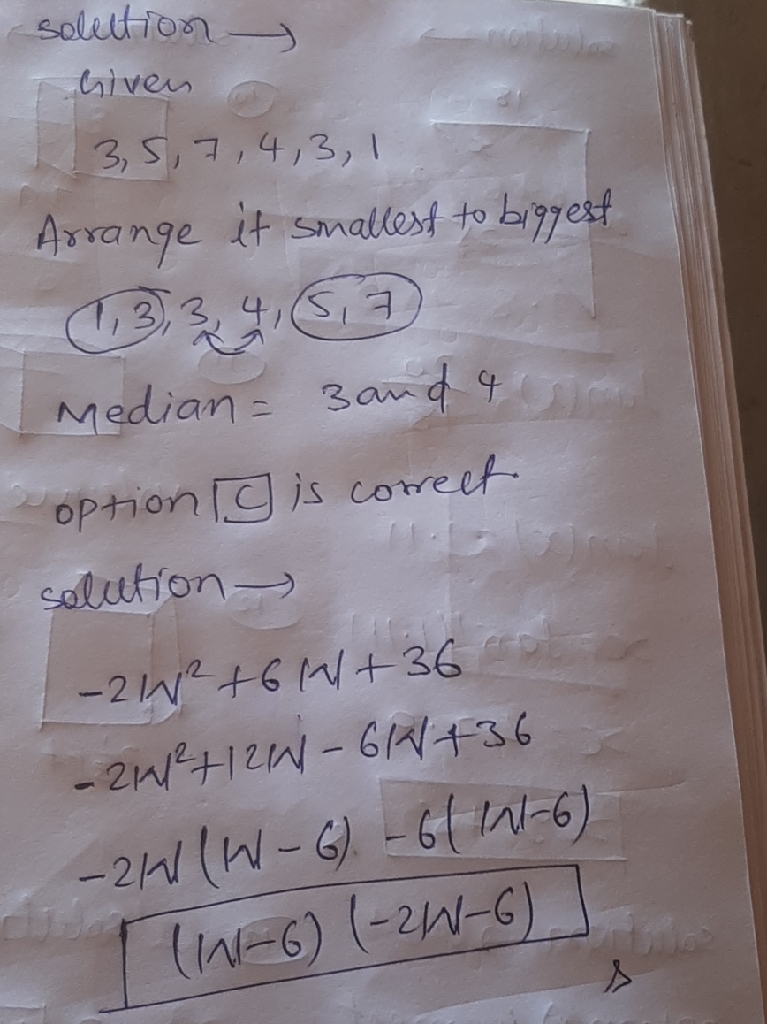 solution →
Given
3, 5, 7, 4, 3, 1
Arrange it smallest to biggest
1, 3, 3, 4, 5, 7
Median = 3 and 4
option C is correct
solution →
-2W² + 6W + 36
-2W² + 12W - 6W + 36
-2W (W - 6) - 6( W-6)
(W-6) (-2W-6)